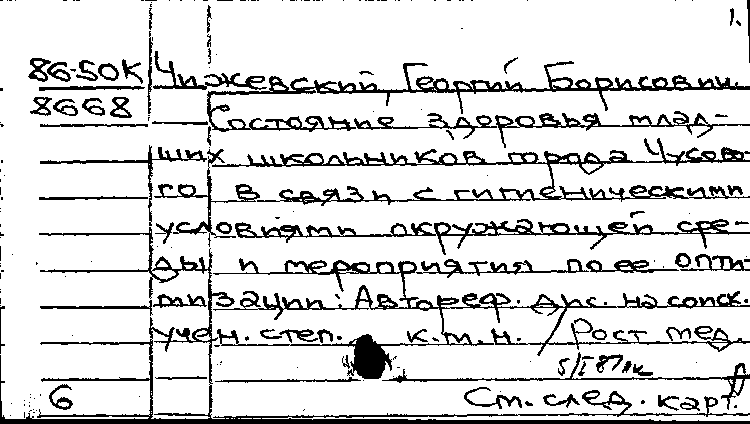 1.
86-50К Чижевский, Георгий Борисович.
8668 Состояние здоровья млад-
ших школьников города Чусово-
го в связи с гигиеническими
условиями окружающей сре-
ды и мероприятия по ее опти-
мизации: Автореф. дис. на соиск.
учен. степ. к.м.н. / Рост мед.
6 См. след. карт.